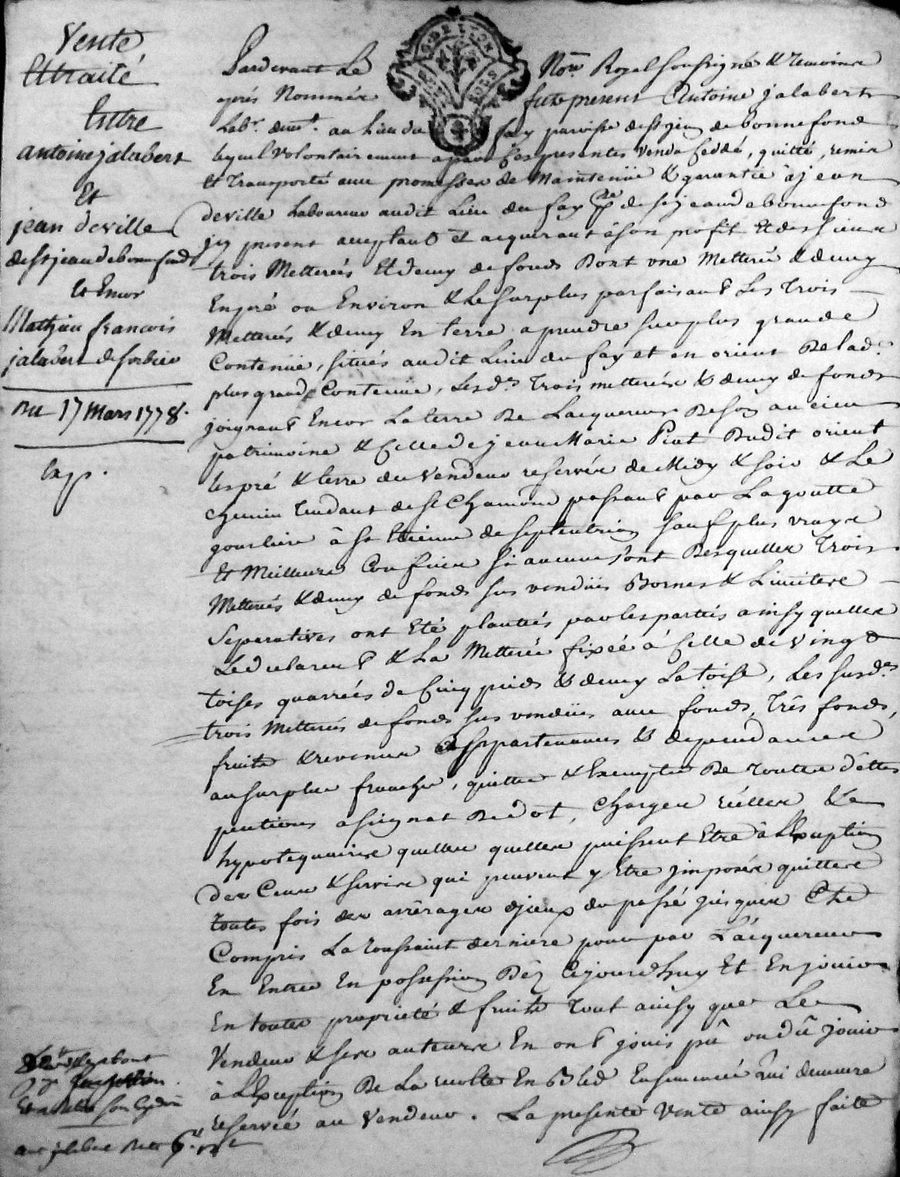 Vente
Et traité
Entre
antoine jalabert
Et
jean deville
de st jean de bonnefonds
Et Encor
Mathieu francois
jalabert de sorbier
Du 17 Mars 1778.
Exp.
Pardevant Le Nore Royal soussigné & temoins
après Nommés fut present Antoine jalabert
Labr. demt. au Lieu du fay paroisse de st jean de bonnefond
lequel Volontairement a par Ces presentes Vendu Ceddé, quitté, remis
Et Transporté aux promesses de Maintenüe & garantie a jean
deville Laboureur audit Lieu du fay psse de st jean de bonnefond
jcy present acceptant et acquerant à son profit Et des siens
trois Metterées Et demy de fonds Dont une Metterée & demy
En pré ou Environ & Le surplus parfaisant Les Trois
Metterées & demy En terre a prendre sur plus grande
Contenüe, situés audit Lieu du fay et en orient De lad.
plus grande Contenüe, Lesds. Trois metterées & demy de fonds
joignant Encor La terre De Lacquereur De son ancien
patrimoine & Celle de jean Marie Piat Dudit orient
Les pré & terre du Vendeur reservés de Midy & soir & Le
chemin Tendant de St Chamond passant par La goutte
gourliere à St Etienne de septentrion sauf plus vrays
Et Meilleurs Confins si aucuns sont Desquelles Trois
Metterées & demy de fonds sus vendües Bornes & Limittes
Separatives ont Eté plantées par les parties ainsy quelles
Le declarent & La Metterée fixée à Celle de Vingt
toises quarrées de Cinq pieds & demy La toise, Les susds.
trois Metterées de fonds sus vendües aux fonds, Trés fonds,
fruits & revenus Appartenances & dependances
au surplus franches, quittes & Exemptes De Toutes dettes
pentions assignat De dot, Charges réelles &
hypotequaires quelles quelles puissent Etre à L'Exception
des Cens & servis qui peuvent y Etre jmposés quittes
Toutes fois des arrérages djceux du passé jusques &
Compris La toussaint derniere pour par L'acquereur
En Entrer En possession Déz cejourdhuy Et En jouir
En toutes propriété & fruits Tout ainsy que Le
Vendeur & ses auteurs En ont jouis pû ou dû jouir
à L'Exception De La recolte En Bled Ensemencée qui demeure
reservée au Vendeur. La presente Vente ainsy faite